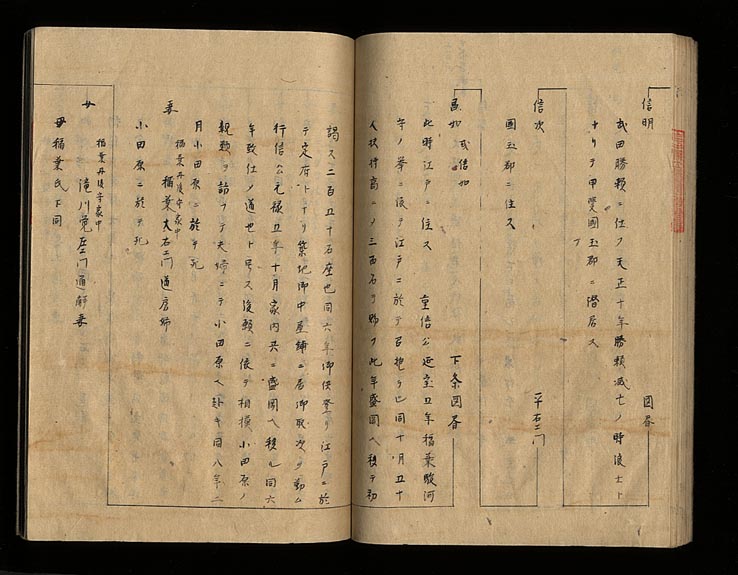 信明　図書
武田勝頼ニ仕フ天正十年勝頼滅亡ノ時浪士ト
ナリテ甲斐國玉郡ニ潜居ス
信次　平右エ門
國玉郡ニ住ス
或信如　下条図書
此時江戸ニ住ス　重信公延宝丑年稲葉駿河
守ノ挙ニ依テ江戸ニ於テ召抱ラル同十月五十
人扶持高ニメ三百石ヲ賜フ此年盛岡へ移テ初
謁ス二百五十石座也同六年御供登リ江戸ニ於
テ定府トナリ築地御中屋鋪ニ居御取次ヲ勤ム
行信公元禄丑年十月家内共ニ盛岡へ移ル同六
年致仕ノ道也ト号ス後願ニ依テ相模小田原ノ
親類ヲ訪フテ夫婦ニテ小田原へ赴キ同八年二
月小田原ニ於テ死
妻　稲葉丹後守家中　稲葉夫右エ門道房姉
小田原ニ於テ死
女　稲葉丹後守家中　滝川覚左エ門通解妻
母稲葉氏下同